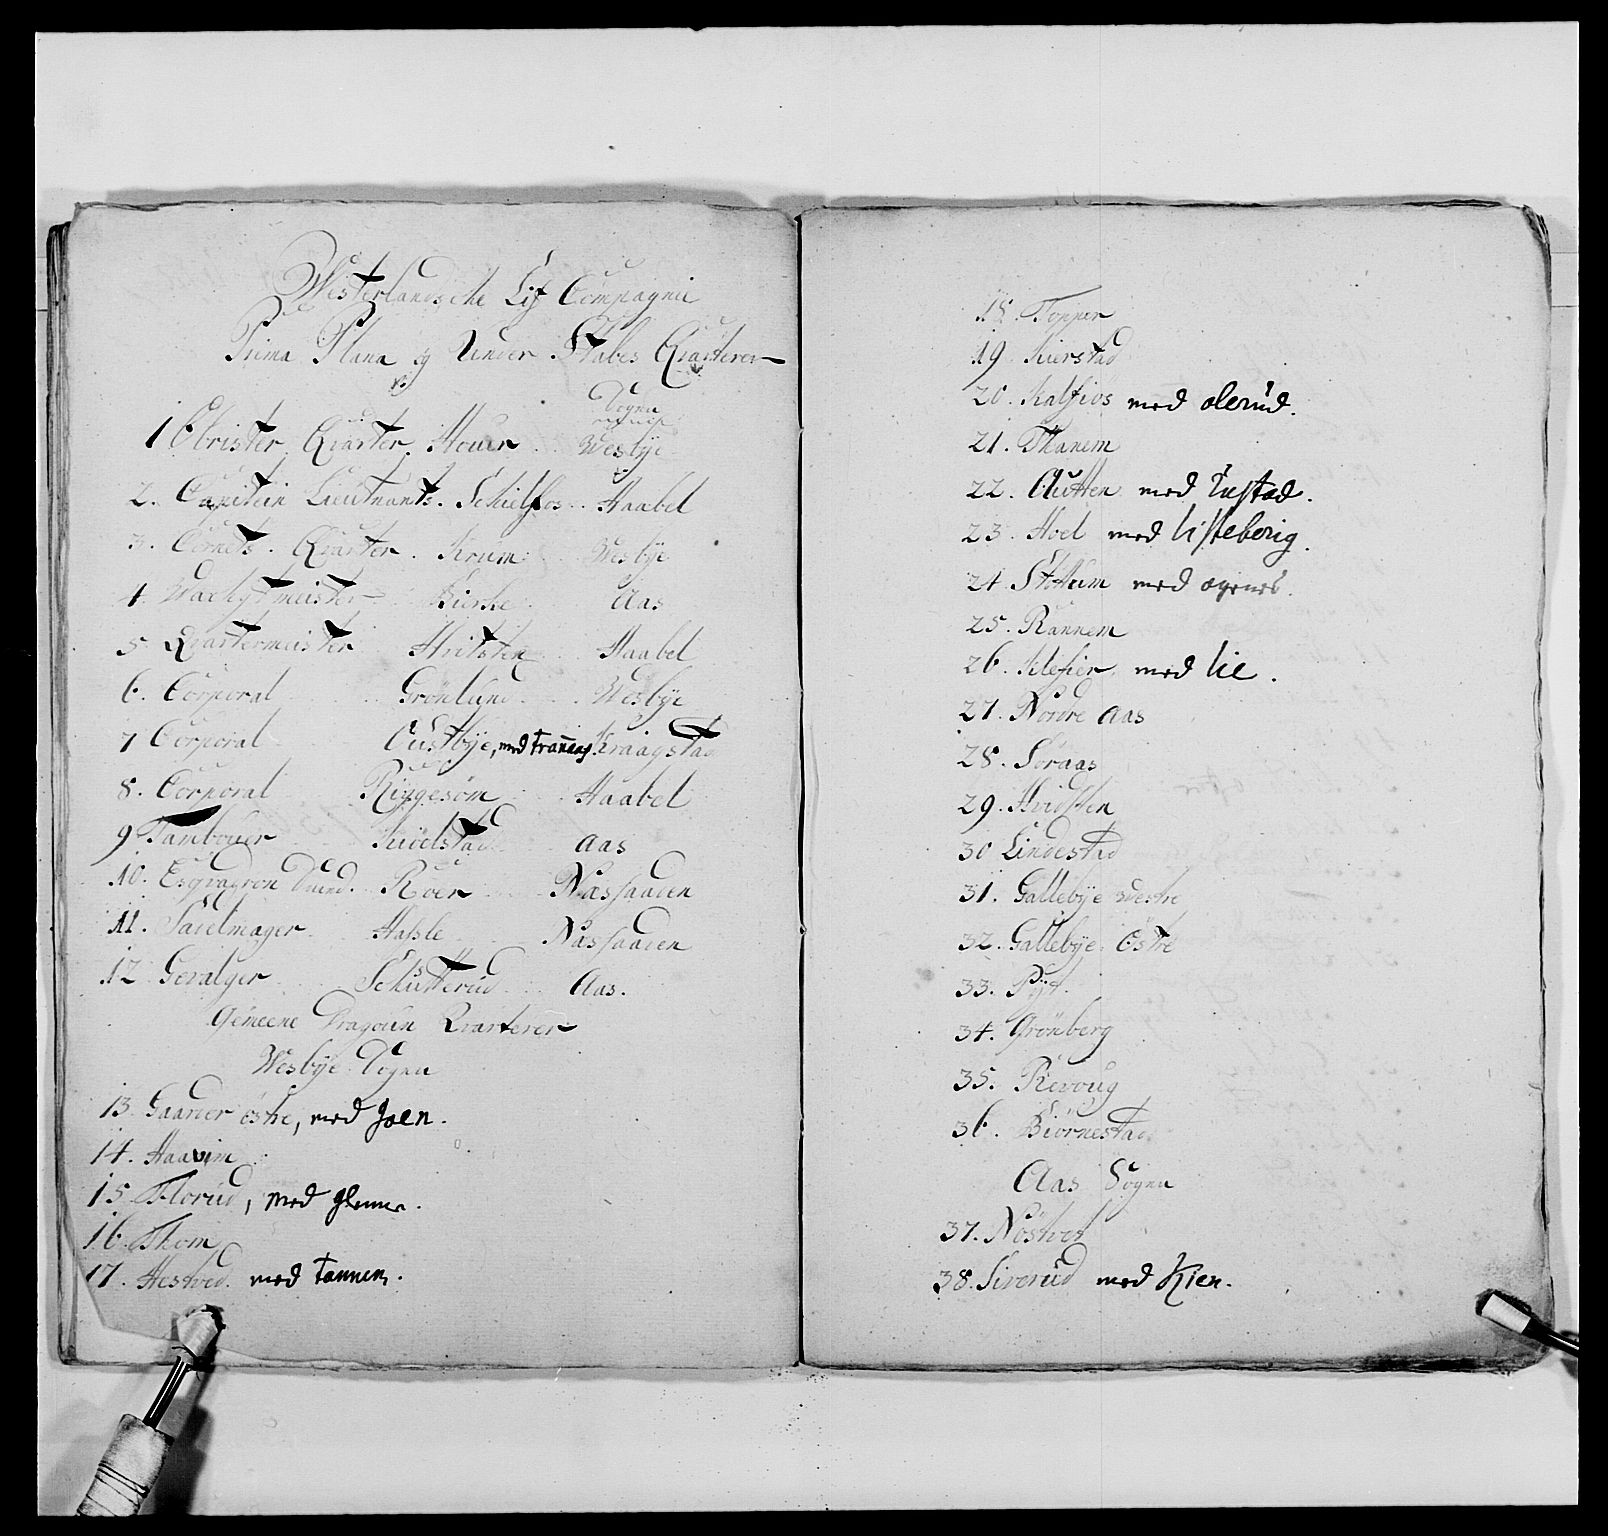 Westerlandsche Lif Compagnie
Prima Plana og Under Stabes Qvarterer
Sogne
1 Obrister Qvarter. Houer Wesbÿe
2. Capitein Lieutnants. Schielfos Haabel
3. Cornets. Qvarter. Krum Wesbÿe
4. Wachtmeister Bierke Aas
5 Qvartermeister Hvitsten Haabel
6. Corporal Grönlund Wesbÿe
7 Corporal Oustbÿe, med Kraagstad
8. Corporal Ringesöm Haabel
9 Tambouer Kiölstad Aas
10. Esqvadron Roer Næssaaden
11. Sadelmager Hasle Næssaaden
12 Gevalger Schutterud Aas.
Gemeene Dragoun Qvarterer
Wesbÿe Sogne
13 Gaarder östre, med Joen.
14. Haavim
15 Florud, med glenne.
16. Thom
17. Hestved. med Tannem.
18. Topper
19. Kierstad
20. Kalfiös med olerud.
21. Thanem
22. Autten med Rustad.
23. Hoel med Listeberig.
24. Sthum med
25. Rannem
26. Klefier. med Lie.
27. Nordre Aas
28. Söraas
29. Hvidsten
30 Lindestad
31. Gallebÿe westre
32. Gallebÿe. Östre
33. Pÿt.
34. Grönberg
35. Revoug
36. Biörnestad
Aas Sogne
37. Nöstvet
38. Siverud med Kien.